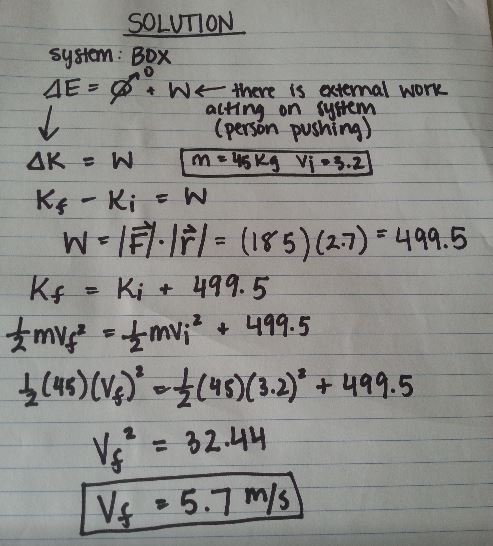 SOLUTION
system: BOX
ΔE = Q⁰ + W ← there is external work
acting on system
(person pushing)
↓
ΔK = W
m = 45 kg vi = 3.2
Kf - Ki = W
W = |F⃗|·|r⃗| = (185)(2.7) = 499.5
Kf = Ki + 499.5
½mVf² = ½mVi² + 499.5
½(45)(Vf)² = ½(45)(3.2)² + 499.5
Vf² = 32.44
Vf = 5.7 m/s